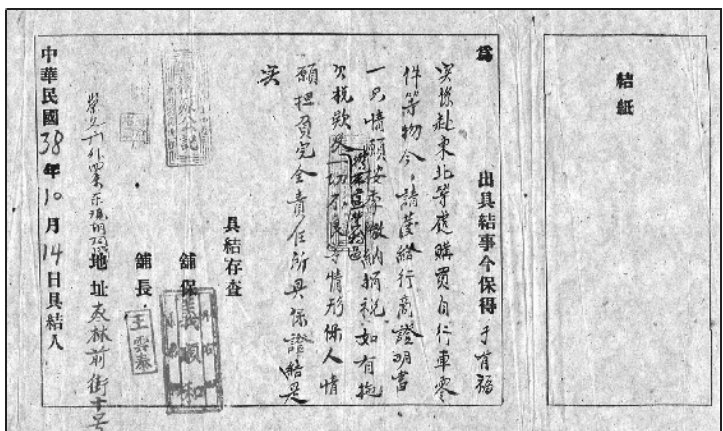 結紙
為
出具結事今保得于有福
实係赴東北等處購買自行車零
件等物今請發給行商證明書
一只情願按季繳納捐税如有拖
欠税款及一切不良等情形保人情
願担負完全責任所具保證結是
实
具結存查
舖保
義順和
舖長
王雲泰
地址友林前街十号
中華民國38年10月14日具結人